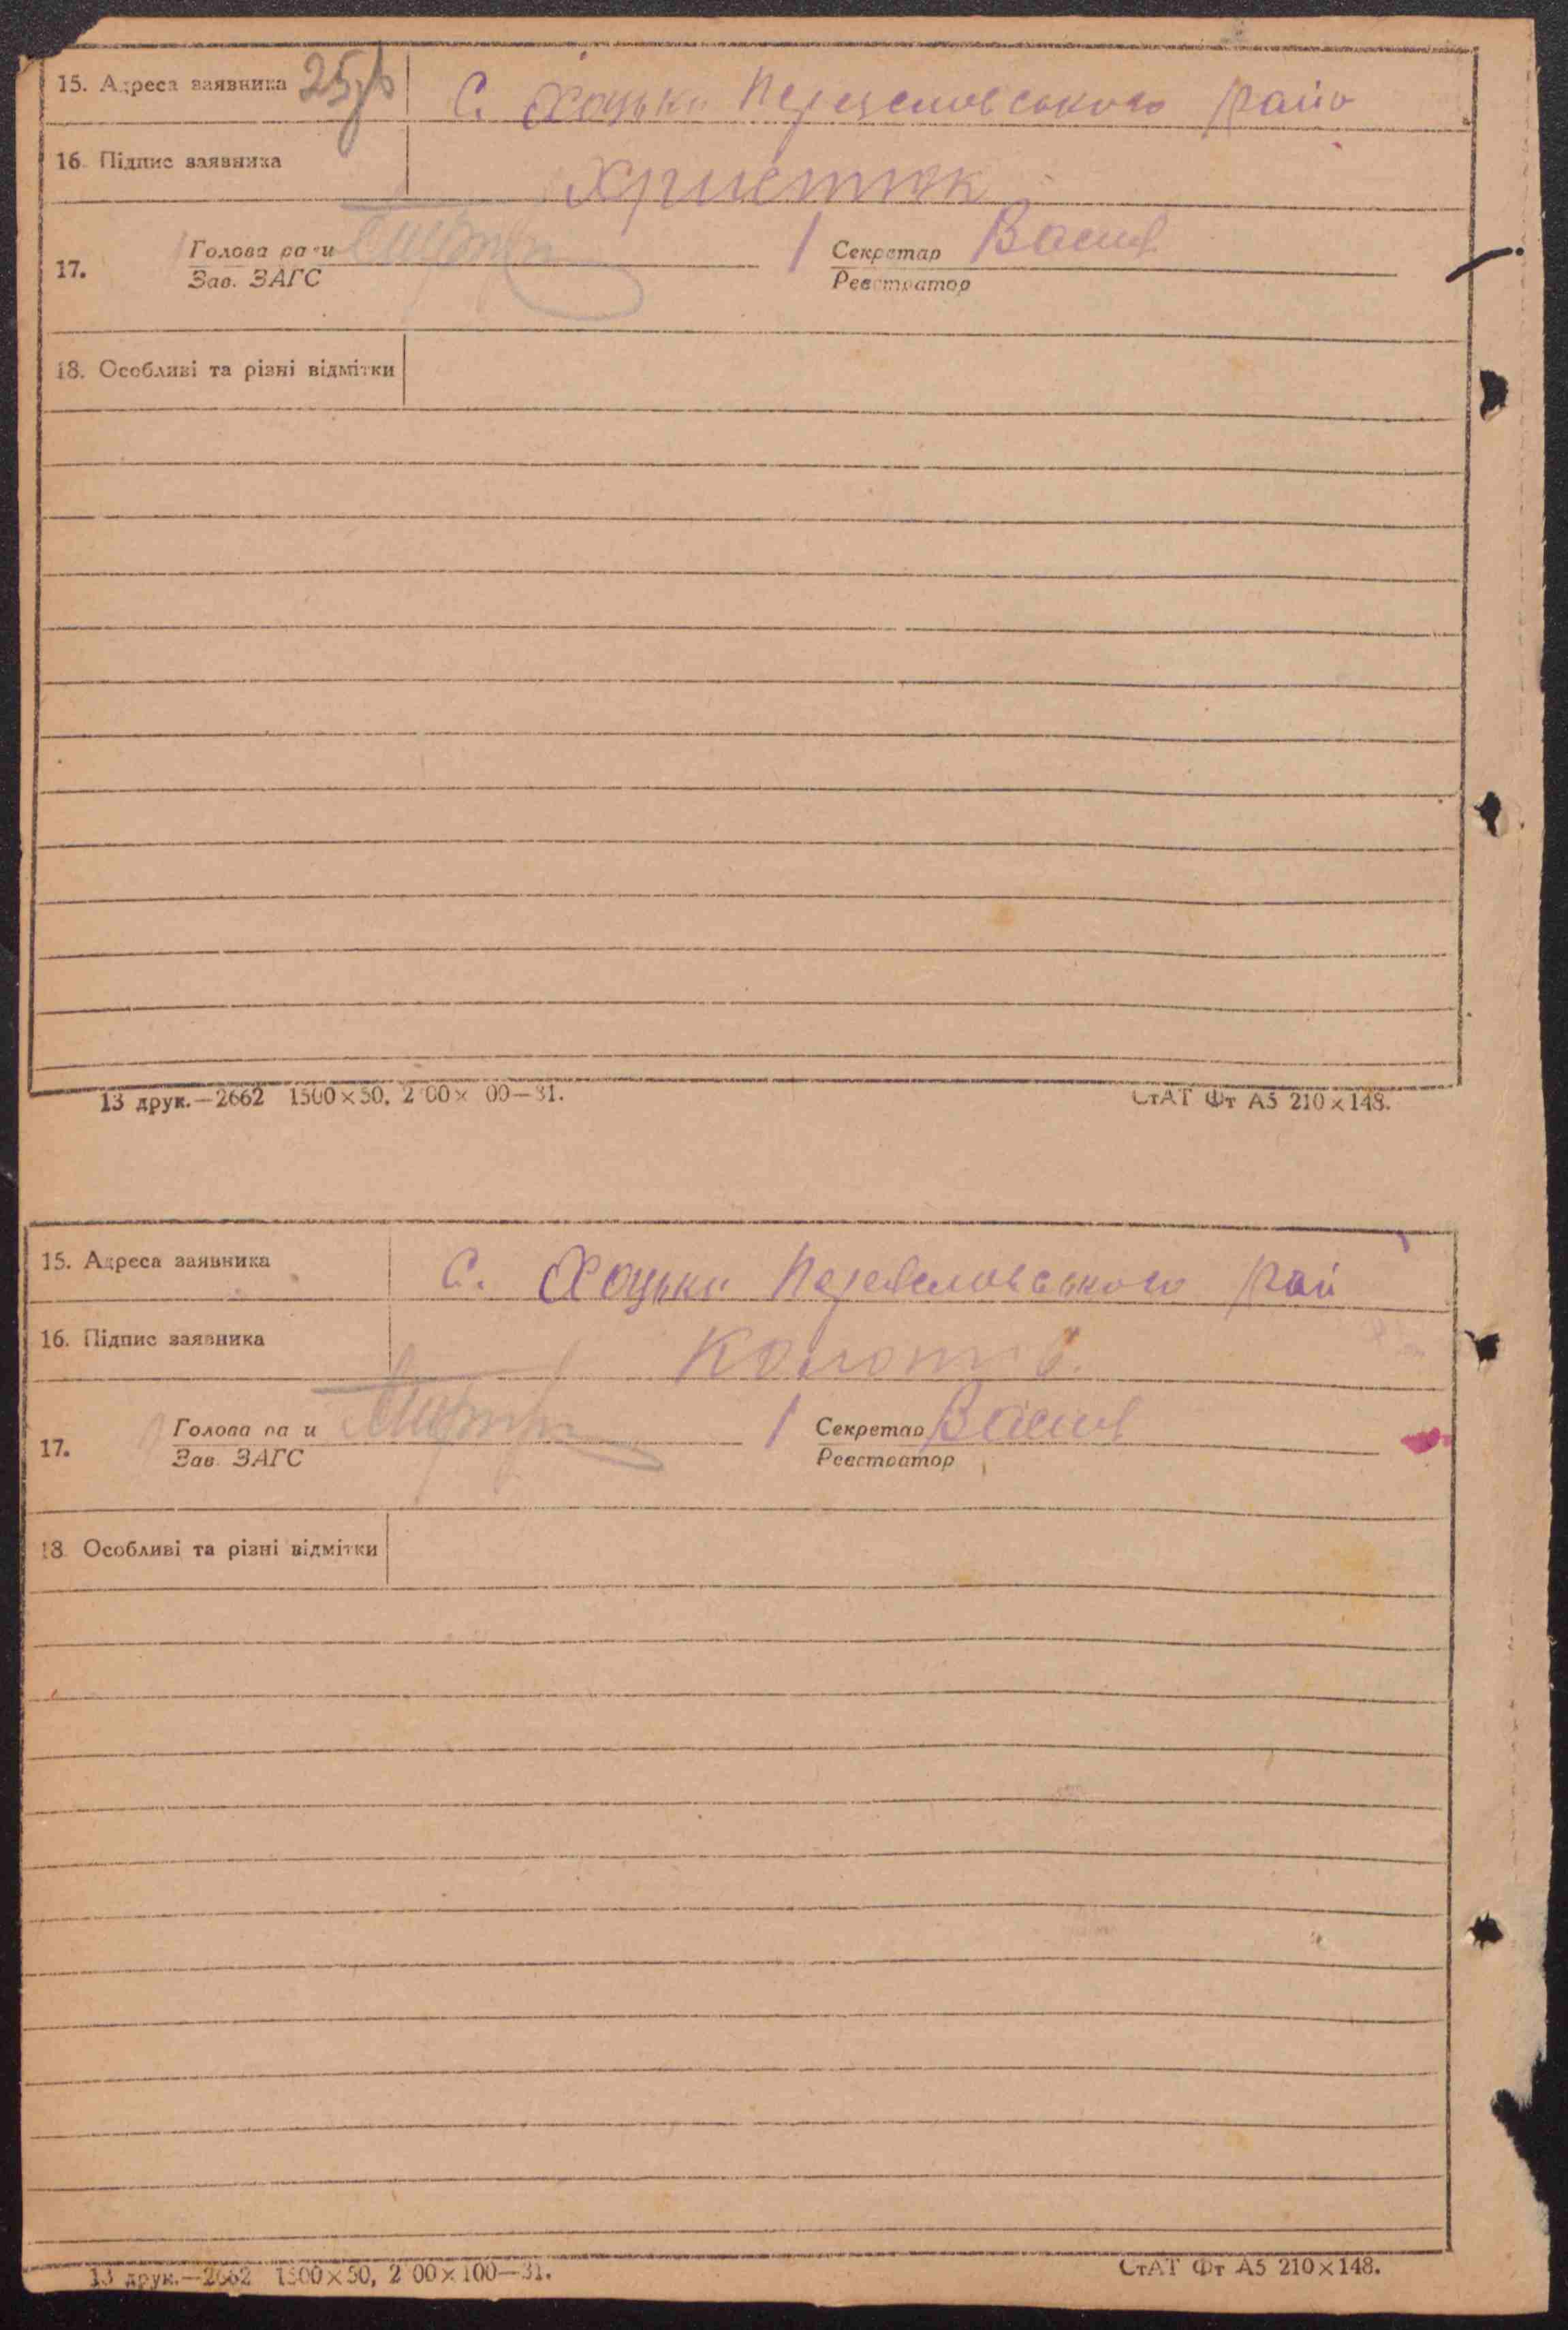 15. Адреса заявника 25зв С. Хоцьки Переяславського райо
16. Підпис заявника Христюк
17. Голова ра и Секретар Васил
Зав. ЗАГС Реєстратор
18. Особливі та різні відмітки
13 друк.—2662 1500×50, 2 00× 00—31. СтАТ Фт А5 210×148.
15. Адреса заявника С. Хоцьки Переяславського рай
16. Підпис заявника
17. Голова ра и Секретар Васил
Зав. ЗАГС Реєстратор
18. Особливі та різні відмітки
13 друк.—2662 1500×50, 2 00×100—31. СтАТ Фт А5 210×148.